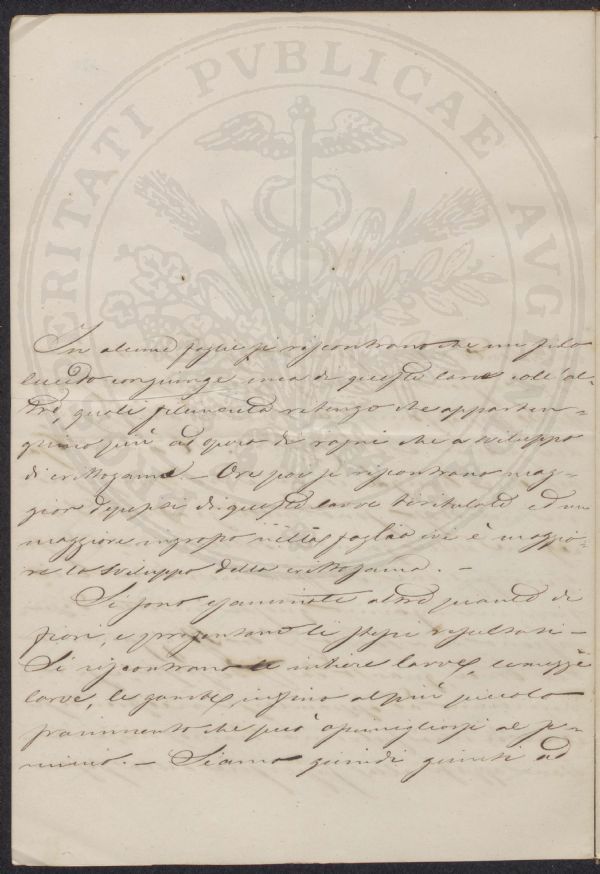 VERITATI PVBLICAE AVGANDA
In alcune foglie si riscontrano che un filo
lucido congiunge una di queste larve coll'al-
tra, quali filamenta ritengo che apparten-
ghino più ad opera di ragni che a sviluppo
di crittogama. – Ove poi si riscontrano mag-
gior depositi di queste larve tritulate ed un
maggiore ingropo nella foglia ivi è maggio-
re lo sviluppo della crittogama. –
Si sono esaminate altre piante di
fiori, e presentano li stessi resultati –
Si riscontrano le intiere larve, le mezze
larve, le gambe, infino al più piccolo
frammento che può assimigliarsi al se-
minio. – Siamo quindi giunti ad